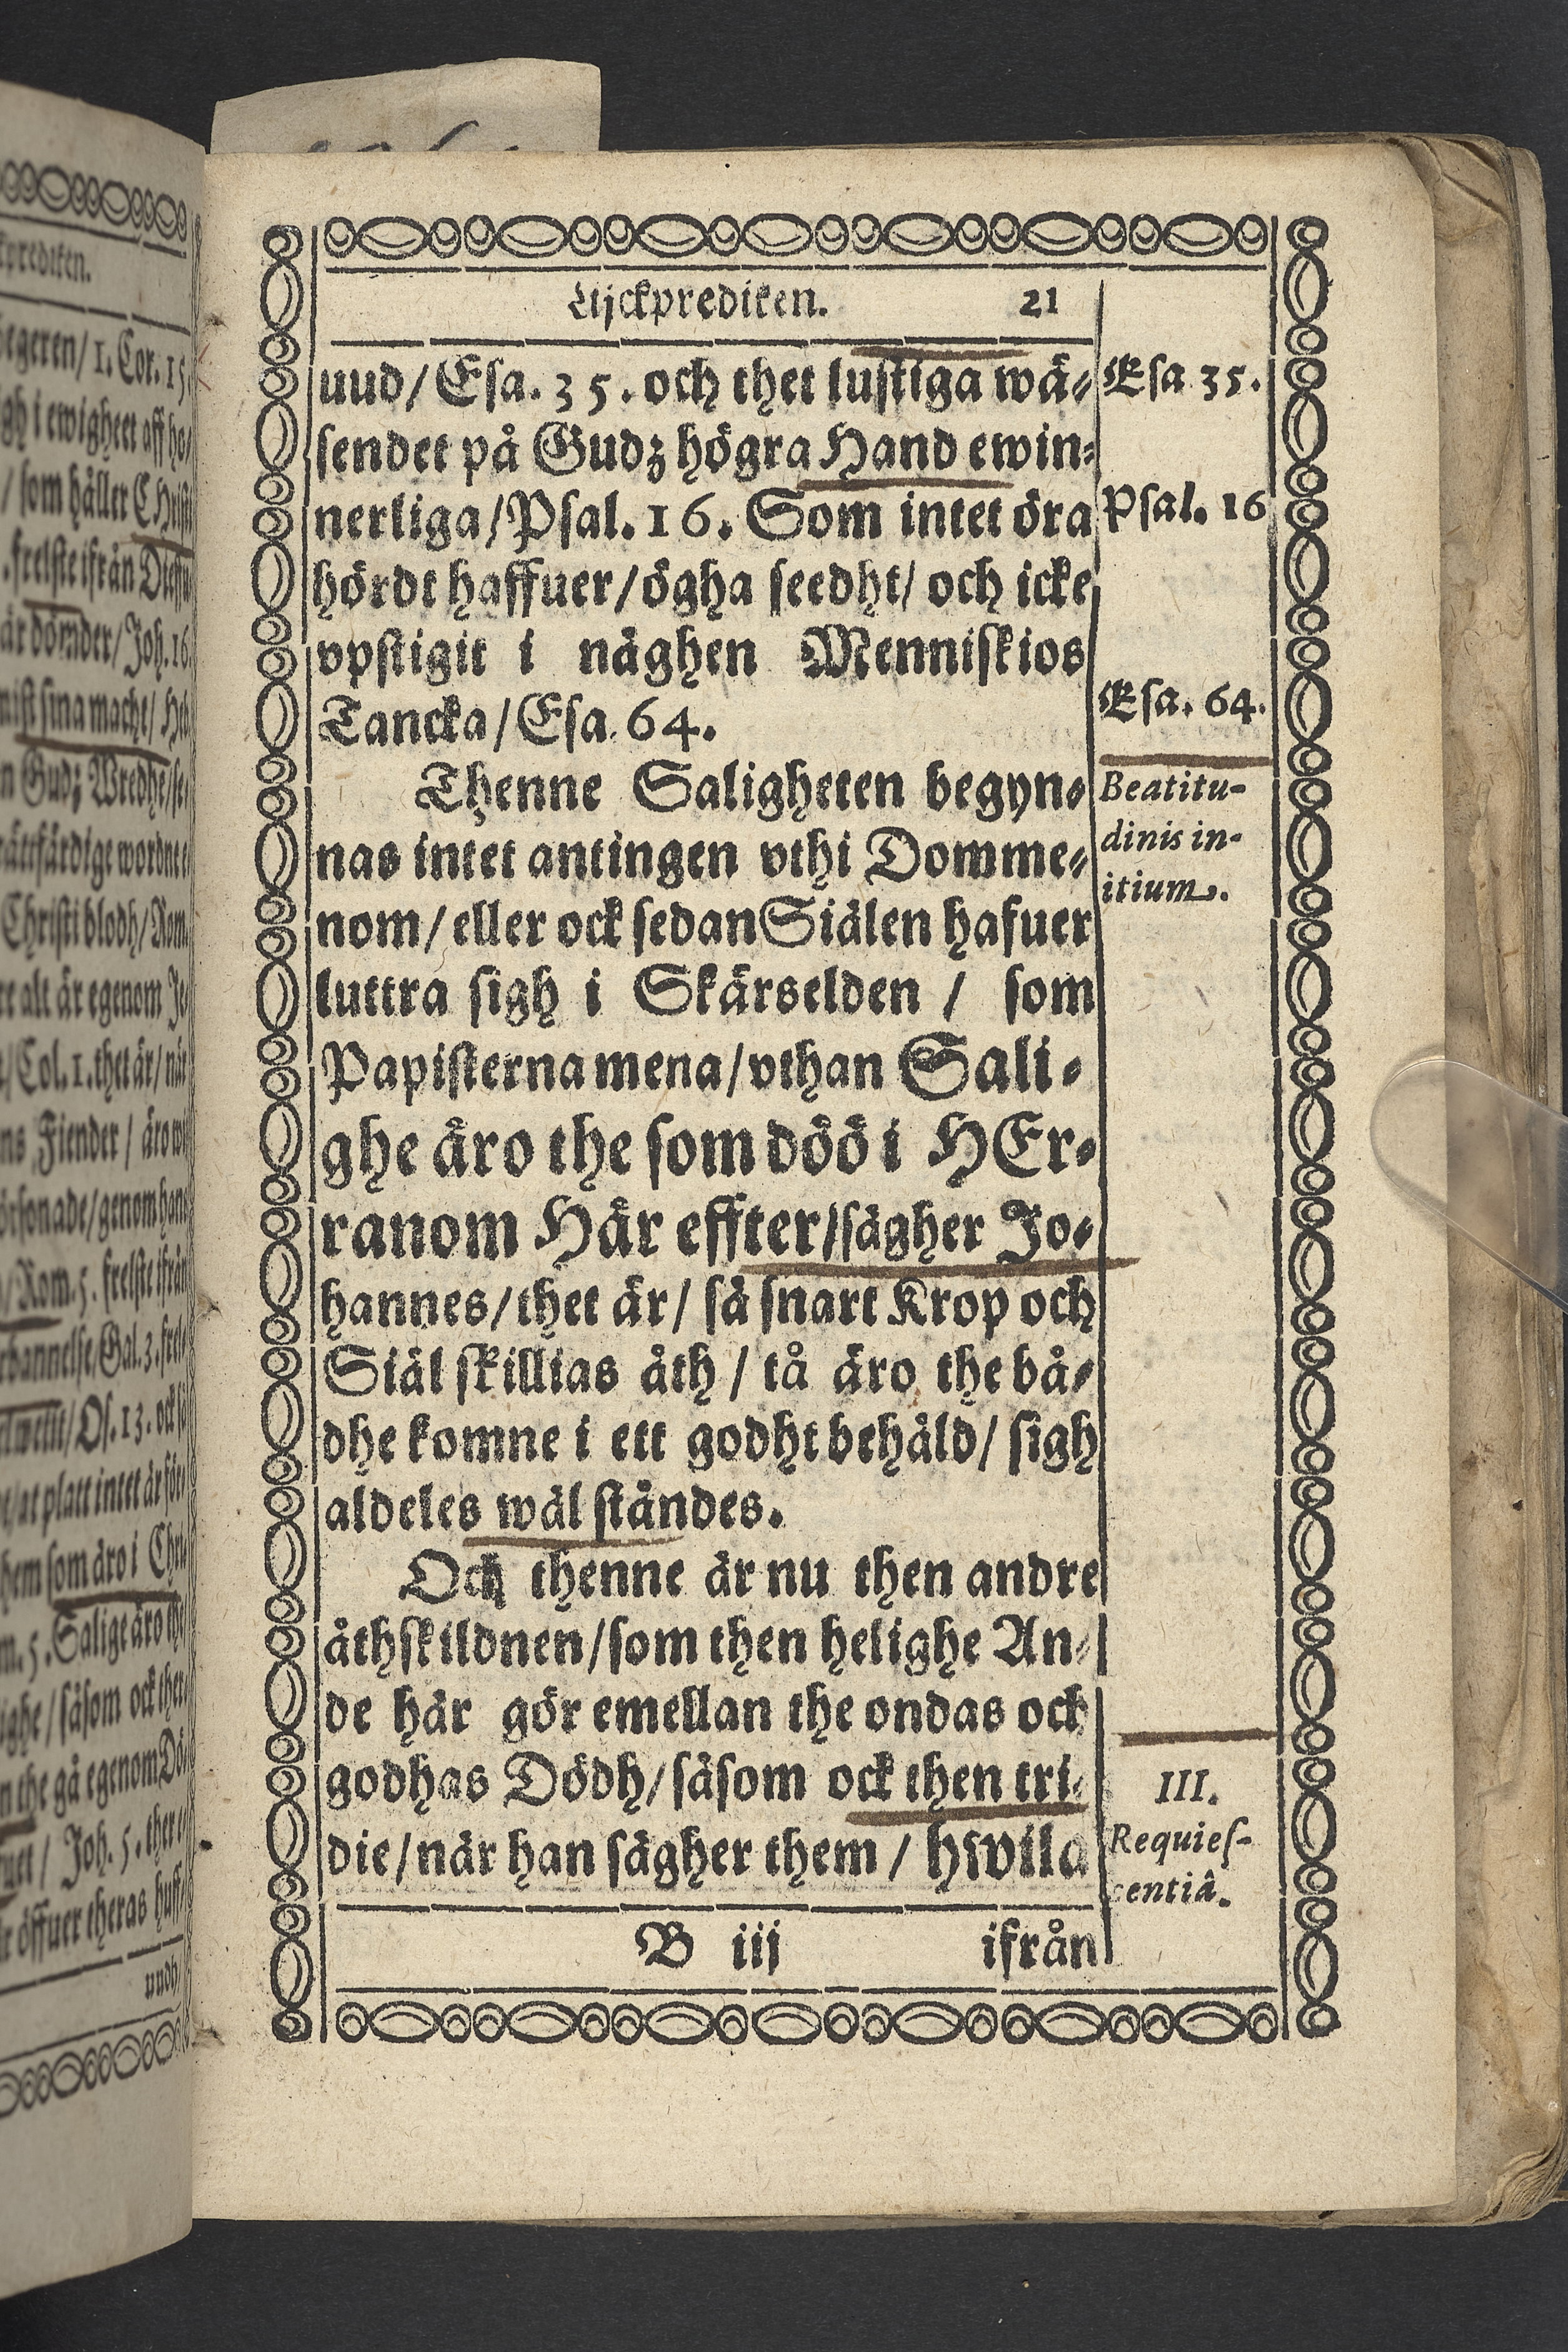 Lijckprediken. 21
uud/ Esa. 35. och thet lustiga wä-
sendet på Gudz högra Hand ewin-
nerliga/ Psal. 16. Som intet öra
hördt haffuer/ ögha seedht/ och icke
vpstigit i någhen Menniskios
Tancka/ Esa. 64.
Thenne Saligheten begyn-
nas intet antingen vthi Domme-
nom/ eller ock sedan Siälen hafuer
luttra sigh i Skärselden / som
Papisterna mena/ vthan Sali-
ghe äro the som döö i HEr-
ranom Här effter/ sägher Jo-
hannes/ thet är/ så snart Krop och
Siäl skillias åth / tå äro the bå-
dhe komne i ett godht behåld/ sigh
aldeles wäl ståndes.
Och thenne är nu then andre
åthskildnen/ som then helighe An-
de här gör emellan the ondas och
godhas Dödh/ såsom ock then tri-
die/ när han sägher them / hwila
B iij ifrån
Esa 35.
Psal. 16
Esa. 64.
Beatitu-
dinis in-
itium.
III.
Requies-
centiâ.
prediken.
egeren/ 1. Cor. 15.
gh i ewigheet aff
/ som håller CHrist
frelste ifrån
är dömder/ Joh. 16.
sina macht/
n Gudz Wredhe/
rättfärdige
Christi blodh/ Rom.
alt är egenom
/ Col. 1. thet är/ när
ns Fiender / äro
försonade/ genom hans
/ Rom. 5. frelste ifrån
Gal. 3.
/ Os. 13. ock
at platt intet är
them som äro i
m. 5. Salige äro the
ighe/ såsom ock
the gå egenom
/ Joh. 5.
öffuer theras
uudh/